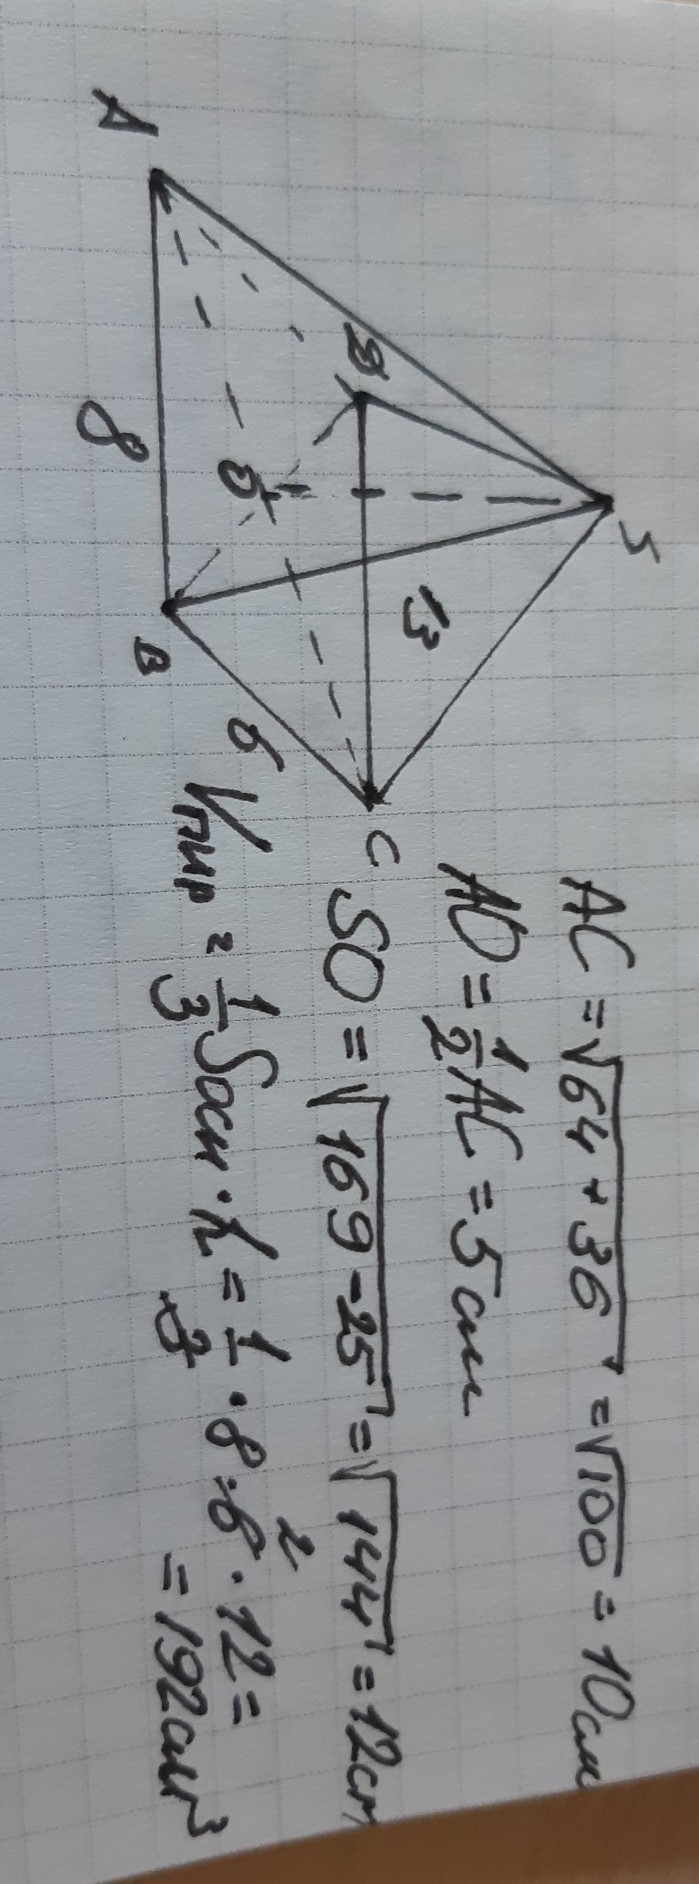 S
В
13
О
А
8
В
6
С
AC = √64 + 36 = √100 = 10 см
АО = 1/2 AC = 5 см
SO = √169 - 25 = √144 = 12 cm
Vпир = 1/3 Sосн · h = 1/3 · 8 · 6 2 · 12 =
= 192 см³